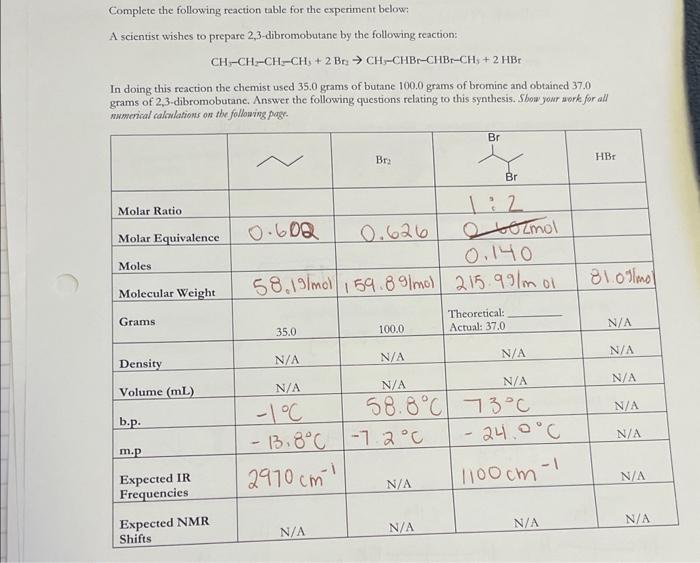 Complete the following reaction table for the experiment below:
A scientist wishes to prepare 2,3-dibromobutane by the following reaction:
CH₃–CH₂–CH₂–CH₃ + 2 Br₂ → CH₃–CHBr–CHBr–CH₃ + 2 HBr
In doing this reaction the chemist used 35.0 grams of butane 100.0 grams of bromine and obtained 37.0
grams of 2,3-dibromobutane. Answer the following questions relating to this synthesis. Show your work for all
numerical calculations on the following page.
Br₂ Br Br HBr
Molar Ratio 1 : 2
Molar Equivalence 0.602 0.626 0.602mol
Moles 0.140
Molecular Weight 58.1g/mol 159.8g/mol 215.9g/mol 81.0g/mol
Grams 35.0 100.0 Theoretical: ________ Actual: 37.0 N/A
Density N/A N/A N/A N/A
Volume (mL) N/A N/A N/A N/A
b.p. -1°C 58.8°C 73°C N/A
m.p -13.8°C -7.2°C -24.0°C N/A
Expected IR Frequencies 2970 cm⁻¹ N/A 1100 cm⁻¹ N/A
Expected NMR Shifts N/A N/A N/A N/A